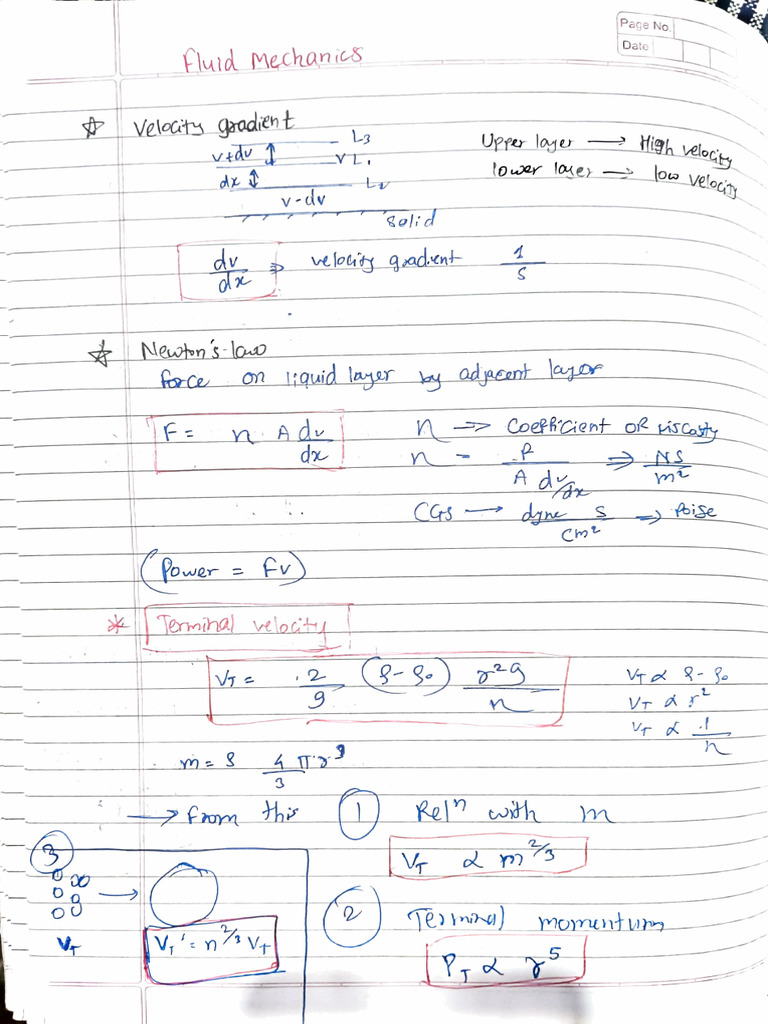 Page No.
Date
Fluid Mechanics
☆ Velocity gradient
L3
v+dv
V L1
dx
L2
v-dv
solid
Upper layer → High velocity
lower layer → low velocity
dv/dx ⇒ velocity gradient 1/s
☆ Newton's law
force on liquid layer by adjacent layer
F = n A dv/dx
n ⇒ coefficient OF viscosity
n = F/(A dv/dx) ⇒ NS/m²
CGS → dyne s/cm² ⇒ Poise
(Power = Fv)
* Terminal velocity
VT = 2/9 (ρ-ρ₀) r²g/n
VT ∝ ρ-ρ₀
VT ∝ r²
VT ∝ 1/n
m = ρ 4/3 π r³
→ From this ① Relⁿ with m
VT ∝ m^2/3
② Terminal momentum
PT ∝ r⁵
③
→
VT
VT' = n^2/3 VT